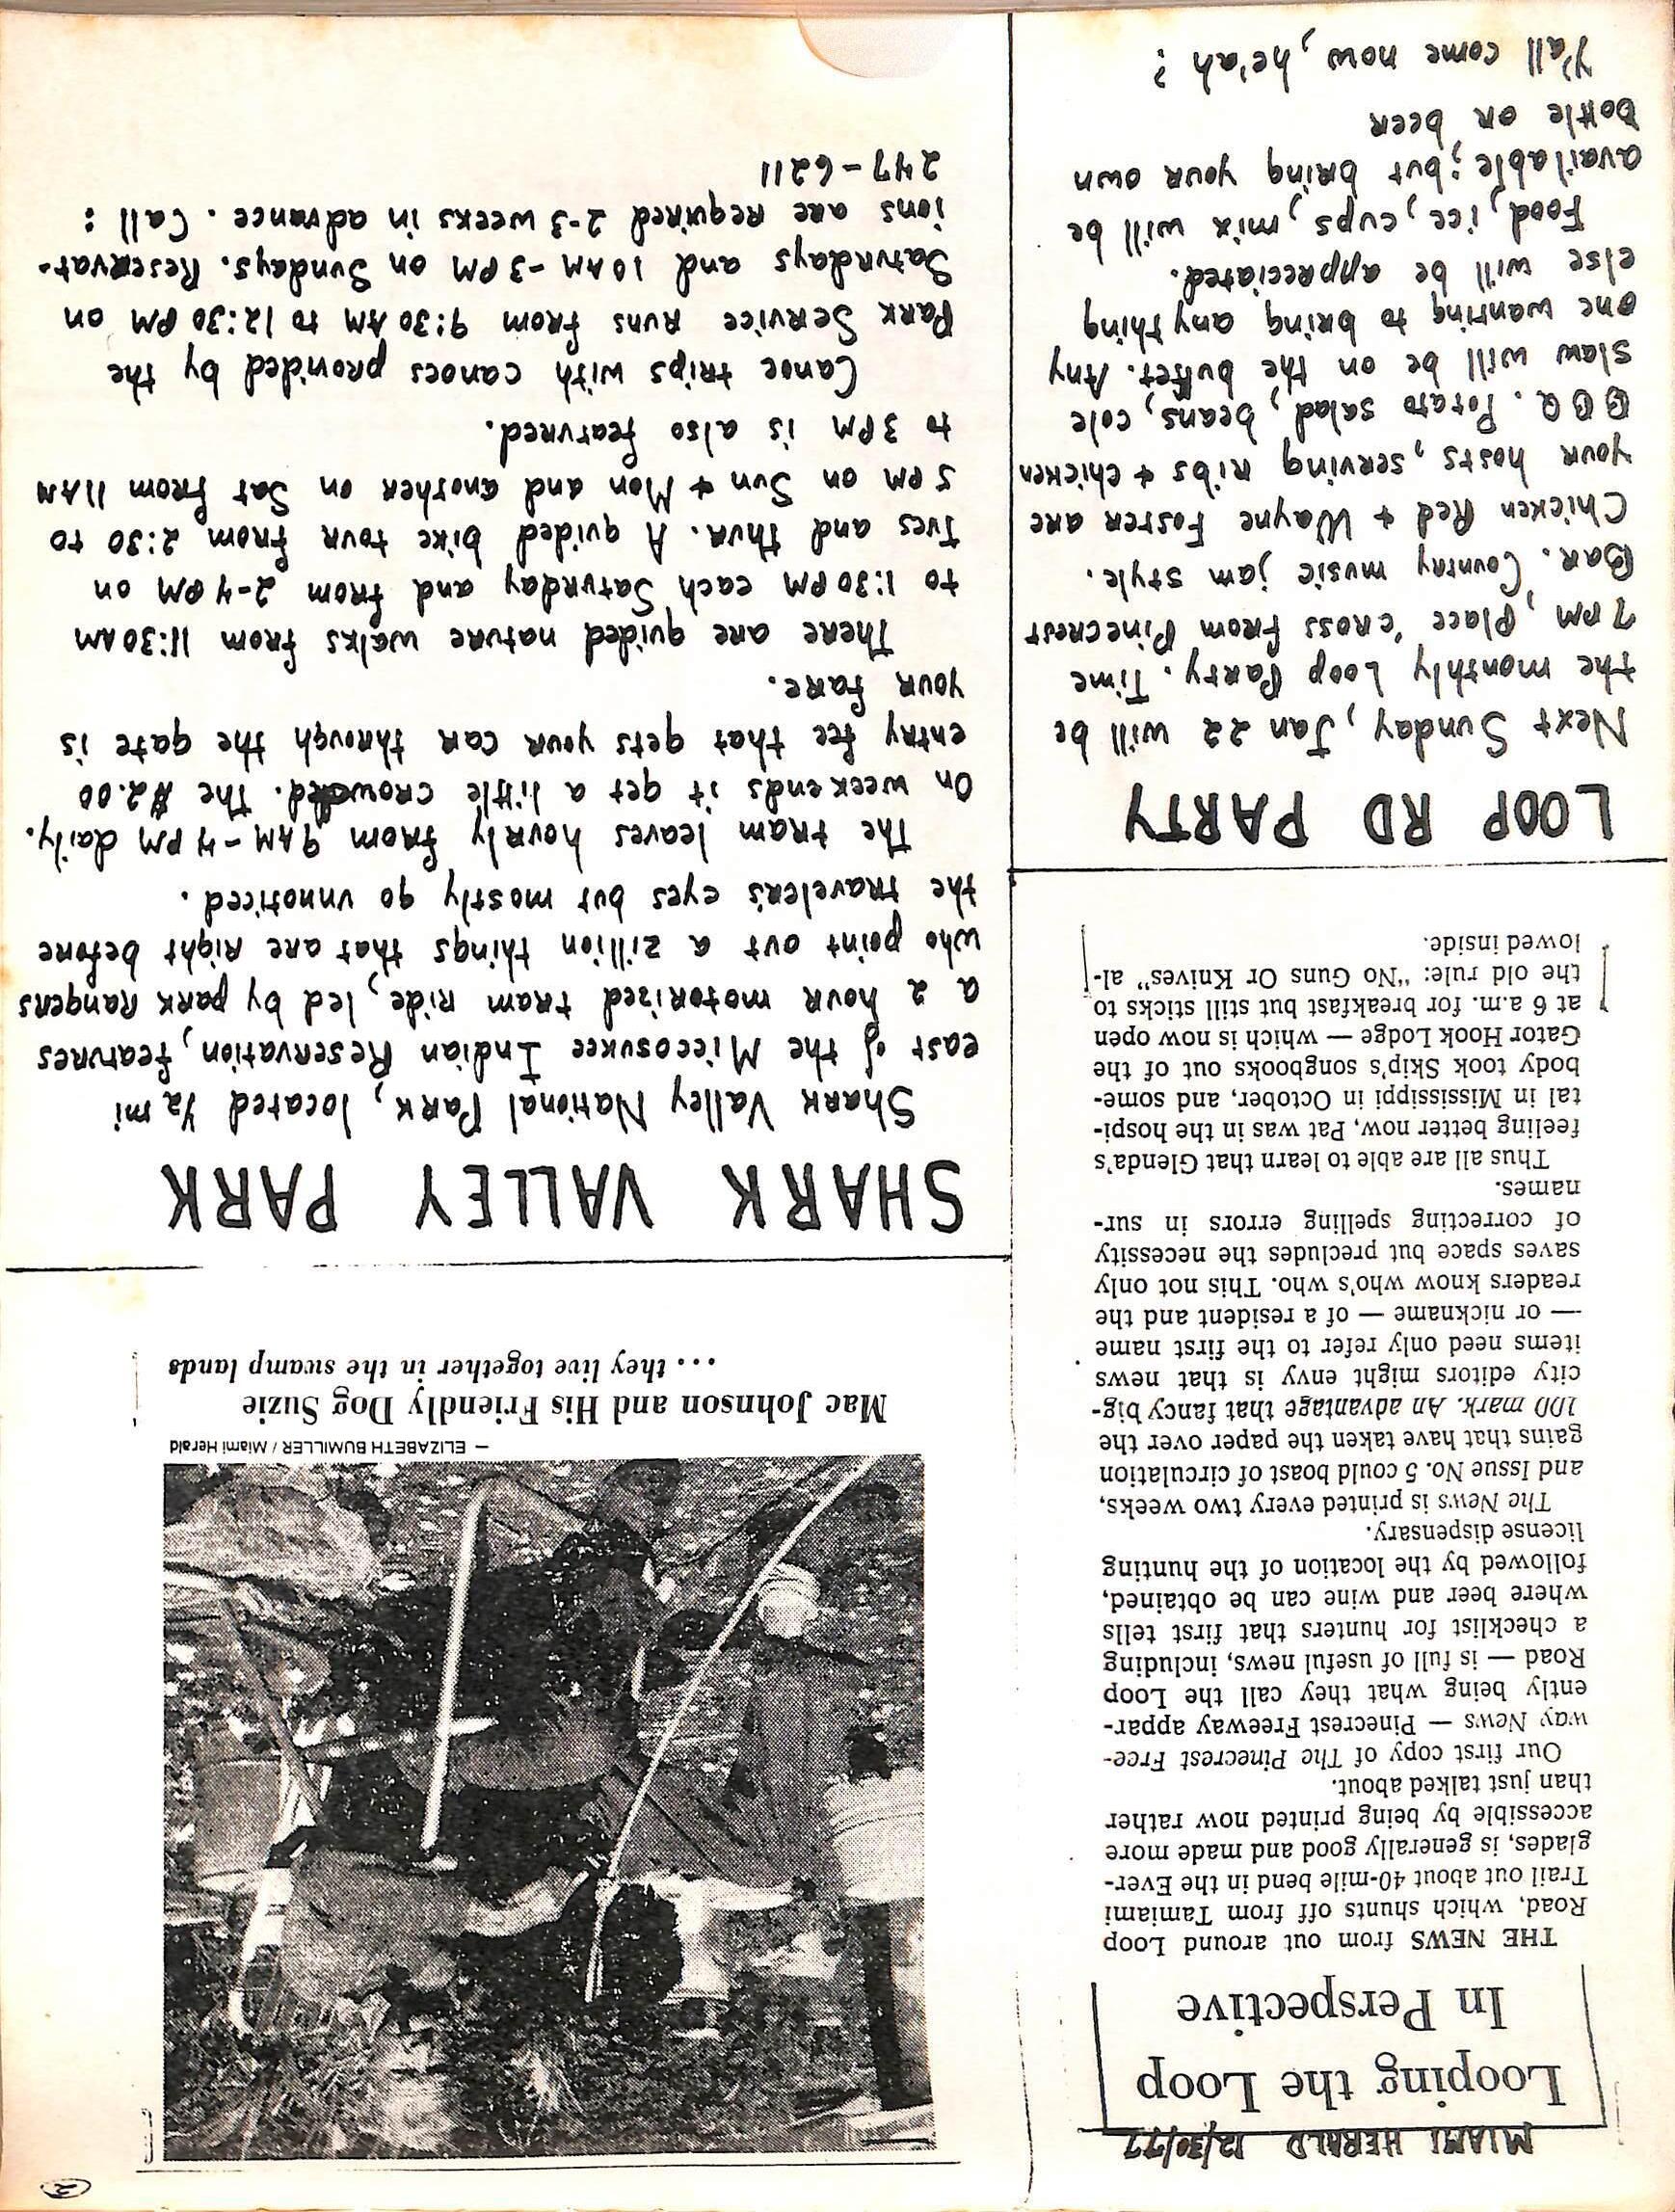 2
MIAMI HERALD 12/30/77
Looping the Loop
In Perspective
THE NEWS from out around Loop
Road, which shunts off from Tamiami
Trail out about 40-mile bend in the Ever-
glades, is generally good and made more
accessible by being printed now rather
than just talked about.
Our first copy of The Pinecrest Free-
way News — Pinecrest Freeway appar-
ently being what they call the Loop
Road — is full of useful news, including
a checklist for hunters that first tells
where beer and wine can be obtained,
followed by the location of the hunting
license dispensary.
The News is printed every two weeks,
and Issue No. 5 could boast of circulation
gains that have taken the paper over the
100 mark. An advantage that fancy big-
city editors might envy is that news
items need only refer to the first name
— or nickname — of a resident and the
readers know who's who. This not only
saves space but precludes the necessity
of correcting spelling errors in sur-
names.
Thus all are able to learn that Glenda's
feeling better now, Pat was in the hospi-
tal in Mississippi in October, and some-
body took Skip's songbooks out of the
Gator Hook Lodge — which is now open
at 6 a.m. for breakfast but still sticks to
the old rule: "No Guns Or Knives" al-
lowed inside.
LOOP RD PARTY
Next Sunday, Jan 22 will be
the monthly Loop Party. Time
7 PM, Place 'cross from Pinecrest
Bar. Country music jam style.
Chicken Red + Wayne Foster are
your hosts, serving ribs + chicken
BBQ. Potato salad, beans, cole
slaw will be on the buffet. Any
one wanting to bring anything
else will be appreciated.
Food, ice, cups, mix will be
available; but bring your own
bottle or beer
Y'all come now, he'ah?
— ELIZABETH BUMILLER / Miami Herald
Mac Johnson and His Friendly Dog Suzie
... they live together in the swamp lands
SHARK VALLEY PARK
Shark Valley National Park, located ½ mi
east of the Miccosukee Indian Reservation, features
a 2 hour motorized tram ride, led by park rangers
who point out a zillion things that are right before
the traveler's eyes but mostly go unnoticed.
The tram leaves hourly from 9 AM-4 PM daily.
On weekends it get a little crowded. The $2.00
entry fee that gets your car through the gate is
your fare.
There are guided nature walks from 11:30 AM
to 1:30 PM each Saturday and from 2-4 PM on
Tues and Thur. A guided bike tour from 2:30 to
5 PM on Sun + Mon and another on Sat from 11 AM
to 3 PM is also featured.
Canoe trips with canoes provided by the
Park Service runs from 9:30 AM to 12:30 PM on
Saturdays and 10 AM-3 PM on Sundays. Reservat-
ions are required 2-3 weeks in advance. Call:
247-6211